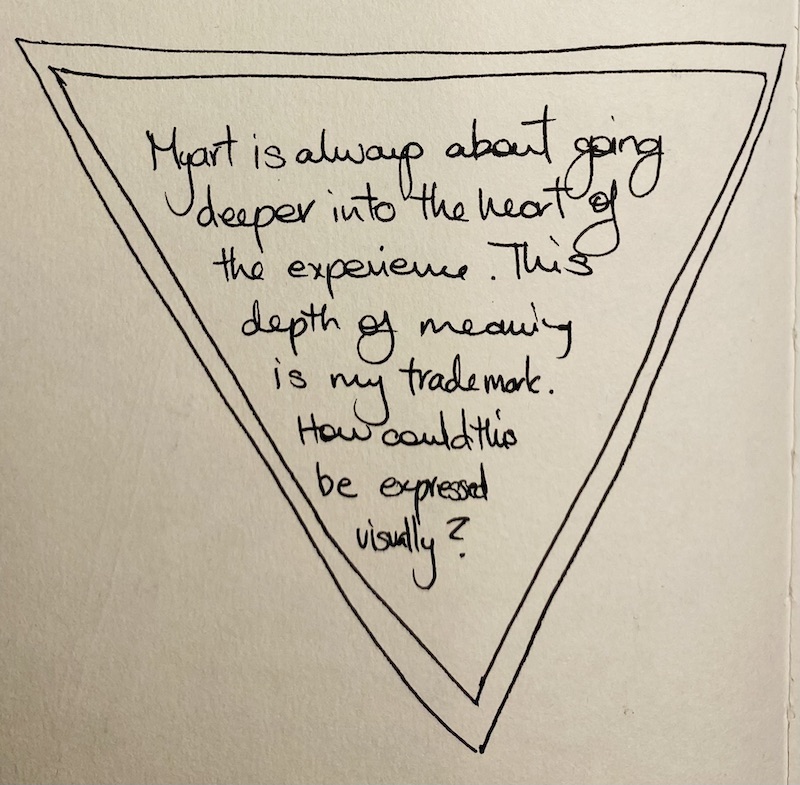 My art is always about going
deeper into the heart of
the experience. This
depth of meaning
is my trademark.
How could this
be expressed
visually?